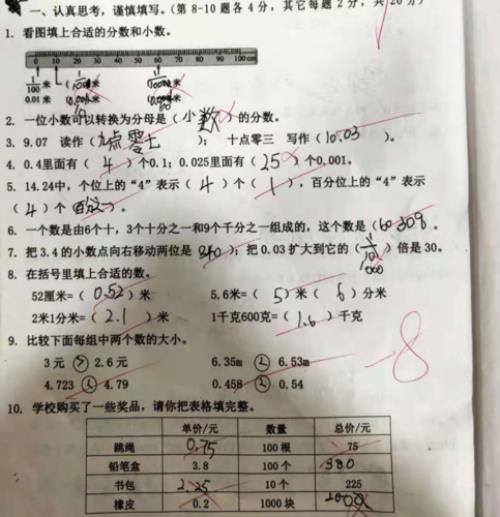 一、认真思考，谨慎填写。(第 8-10 题各 4 分，其它每题 2 分，共 26 分)
1. 看图填上合适的分数和小数。
0 10 20 30 40 50 60 70 80 90 100cm
1/100 米 ( 米 米
0.01 米 米 米
2. 一位小数可以转换为分母是(小数)的分数。
3. 9.07 读作(九点零七); 十点零三 写作(10.03)。
4. 0.4里面有(4)个0.1; 0.025里面有(25)个0.001。
5. 14.24中，个位上的“4”表示(4)个(1)，百分位上的“4”表示
(4)个(百分之一)。
6. 一个数是由6个十，3个十分之一和9个千分之一组成的，这个数是(60.309。
7. 把 3.4 的小数点向右移动两位是 340);把 0.03 扩大到它的( )倍是 30。
8. 在括号里填上合适的数。
52厘米=(0.52)米 5.6米=(5)米(6)分米
2米1分米=(2.1)米 1千克600克=(1.6)千克
9. 比较下面每组中两个数的大小。
3 元 > 2.6 元 6.35m < 6.53m
4.723 < 4.79 0.458 < 0.54
-8
10. 学校购买了一些奖品，请你把表格填完整。
单价/元 数量 总价/元
跳绳 0.75 100 根 75
铅笔盒 3.8 100 个 380
书包 2.25 10 个 225
橡皮 0.2 1000 块